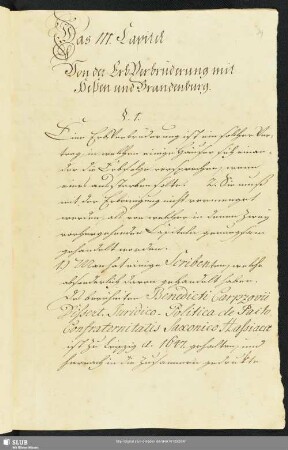 Das III. Capitel
Von der Erb-Verbrüderung mit
Heßen und Brandenburg.
§. 1.
Eine Erb-Verbrüderung ist ein solcher Ver-
trag, in welchen einige Häuser sich einan-
der die Erbfolge versprechen, wenn
eines aussterben sollte. Sie muß
mit der Erbeinigung nicht vermenget
werden, als von welcher in denen zwey
vorhergehenden Capiteln genugsam
gehandelt worden.
Man hat einige Scribenten, welche
absonderlich davon gehandelt haben.
Des berühmten Benedicti Carpzovii
Dissert. Juridico-Politica de Pacto
Confraternitatis Saxonico Hassiacae
ist zu Leipzig gehalten, und
hernach in die zusammen gedruckte
SLUB